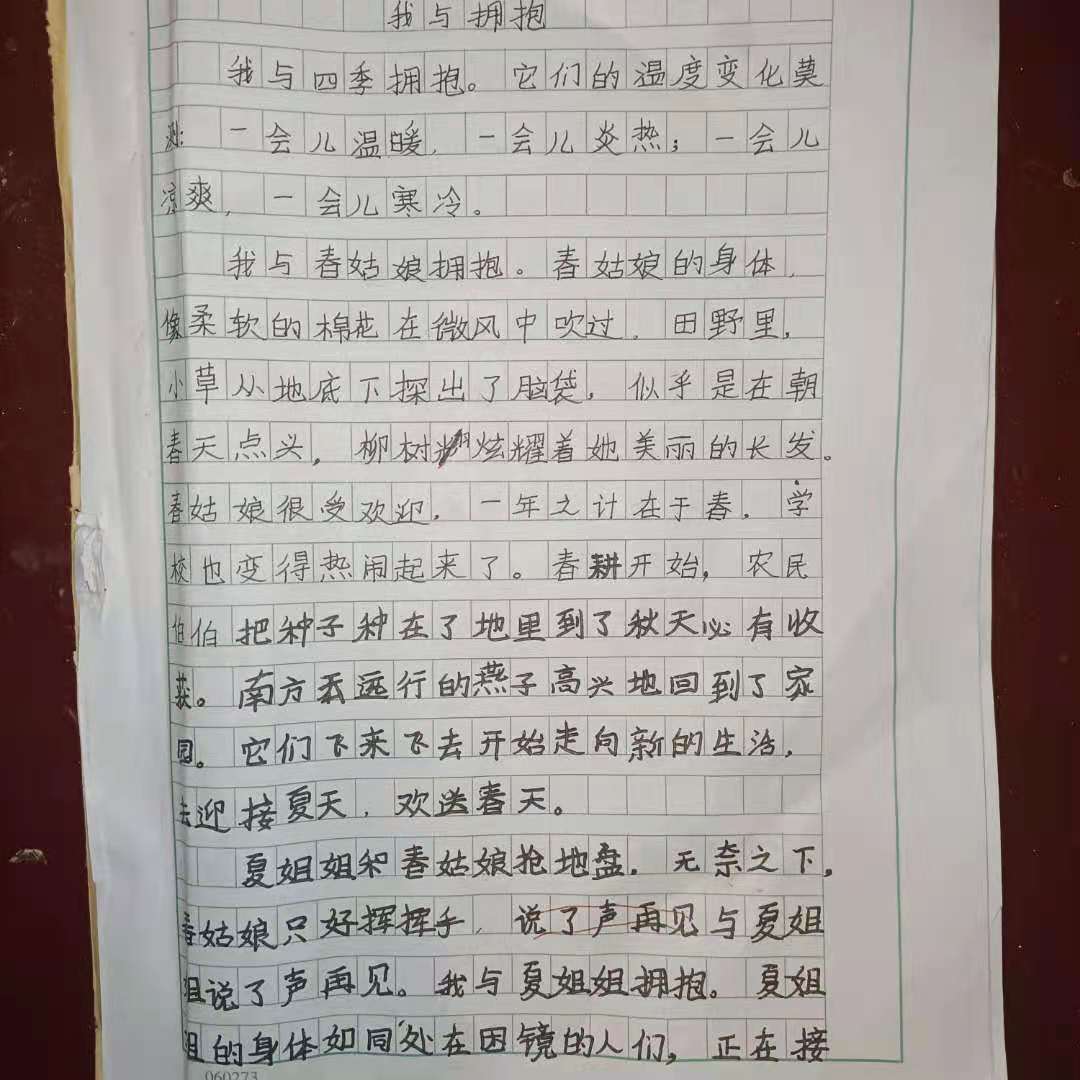 我与拥抱
我与四季拥抱。它们的温度变化莫
测：一会儿温暖，一会儿炎热；一会儿
凉爽，一会儿寒冷。
我与春姑娘拥抱。春姑娘的身体，
像柔软的棉花在微风中吹过，田野里，
小草从地底下探出了脑袋，似乎是在朝
春天点头，柳树炫耀着她美丽的长发。
春姑娘很受欢迎，一年之计在于春，学
校也变得热闹起来了。春耕开始，农民
伯伯把种子种在了地里到了秋天必有收
获。南方远行的燕子高兴地回到了家
园。它们飞来飞去开始走向新的生活，
去迎接夏天，欢送春天。
夏姐姐和春姑娘抢地盘，无奈之下，
春姑娘只好挥挥手，说了声再见与夏姐
姐说了声再见。我与夏姐姐拥抱。夏姐
姐的身体如同处在困镜的人们，正在接
060273